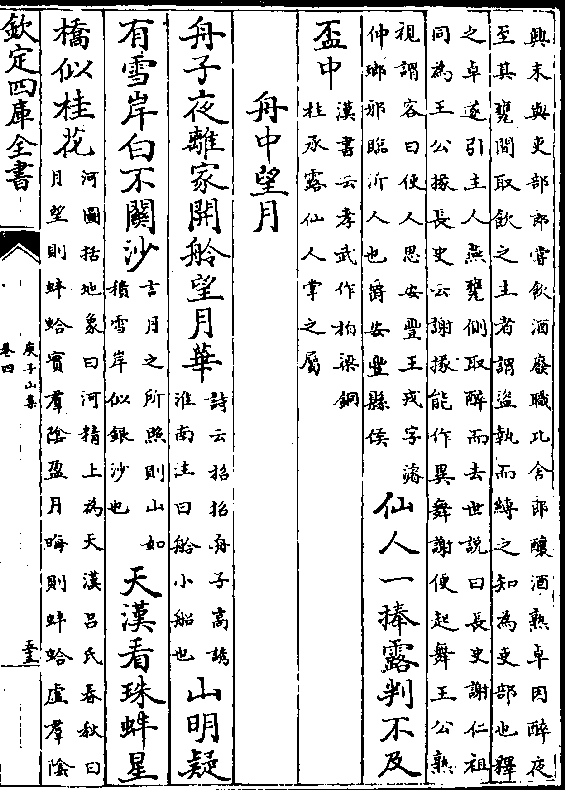 興末與吏部郎嘗飲酒廢職比舍郎釀酒熟卓因醉夜
至其甕間取飲之主者謂盜執而縛之知為吏部也釋
之卓遂引主人燕甕側取醉而去世說曰長史謝仁祖
同為王公掾長史云謝掾能作異舞謝便起舞王公熟
視謂客曰使人思安豐王戎字濬
仲瑯邪臨沂人也爵安豐縣侯
仙人一捧露判不及
盃中
漢書云孝武作柏梁銅
柱承露仙人掌之屬
舟中望月
舟子夜離家開舲望月華
詩云招招舟子高誘
淮南注曰舲小船也
山明疑
有雪岸白不關沙
言月之所照則山如
積雪岸似銀沙也
天漢看珠蚌星
橋似桂花
河圖括地象曰河精上為天漢呂氏春秋曰
月望則蚌蛤實羣陰盈月晦則蚌蛤虛羣陰
欽定四庫全書
庾子山集
卷四